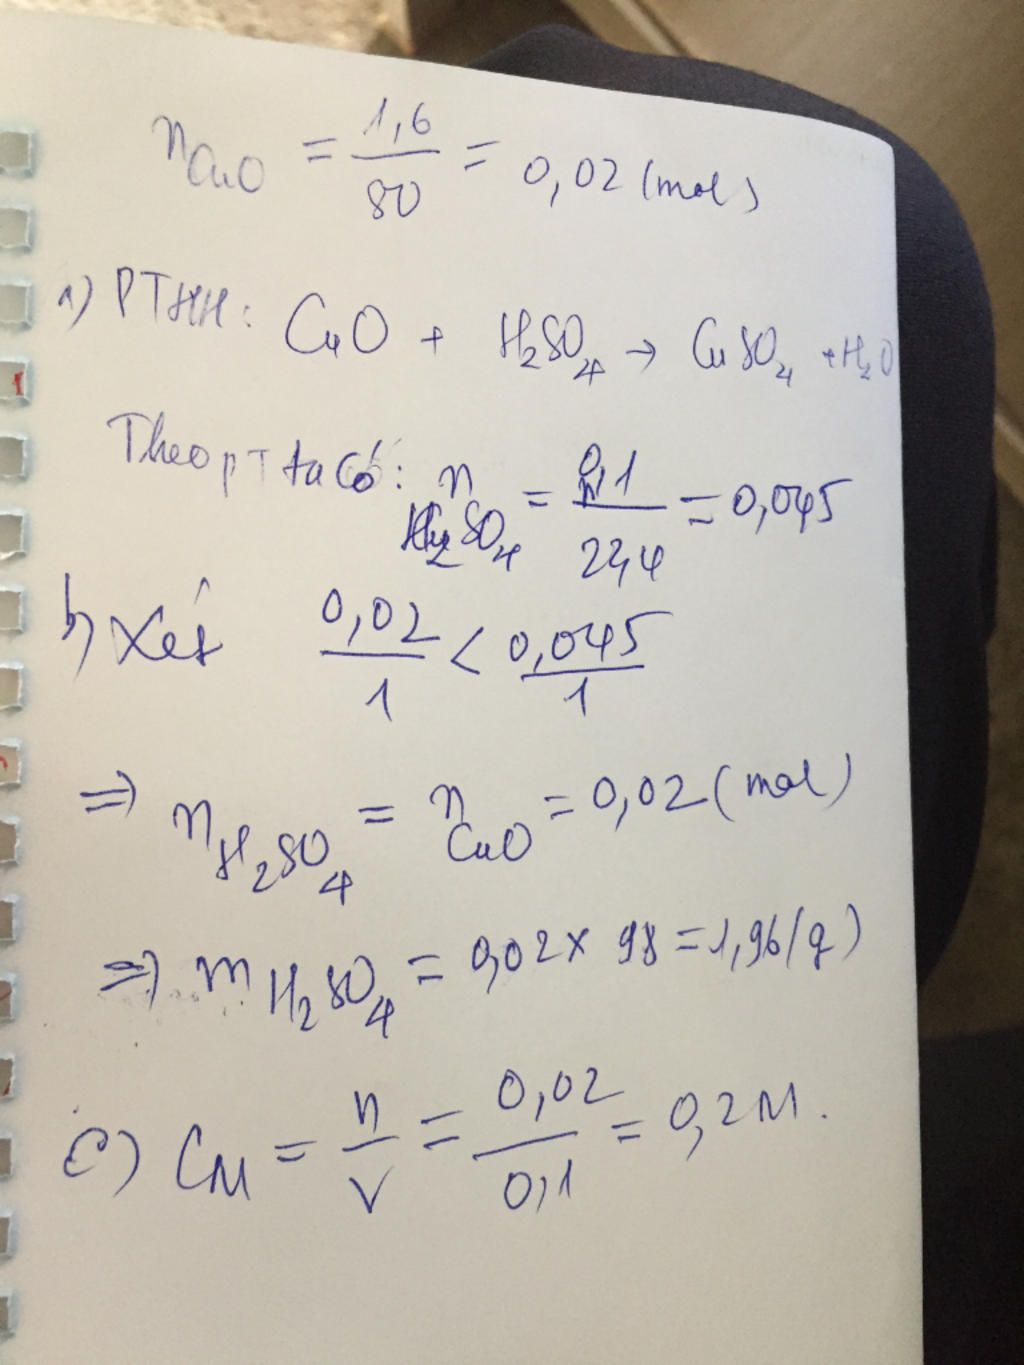 nCuO = 1,6/80 = 0,02 (mol)
a) PTHH: CuO + H2SO4 → CuSO4 + H2O
Theo PT ta có: nH2SO4 = 0,1/22,4 = 0,045
b) Xét 0,02/1 < 0,045/1
⇒ nH2SO4 = nCuO = 0,02 (mol)
⇒ mH2SO4 = 0,02 x 98 = 1,96 (g)
c) CM = n/V = 0,02/0,1 = 0,2M.